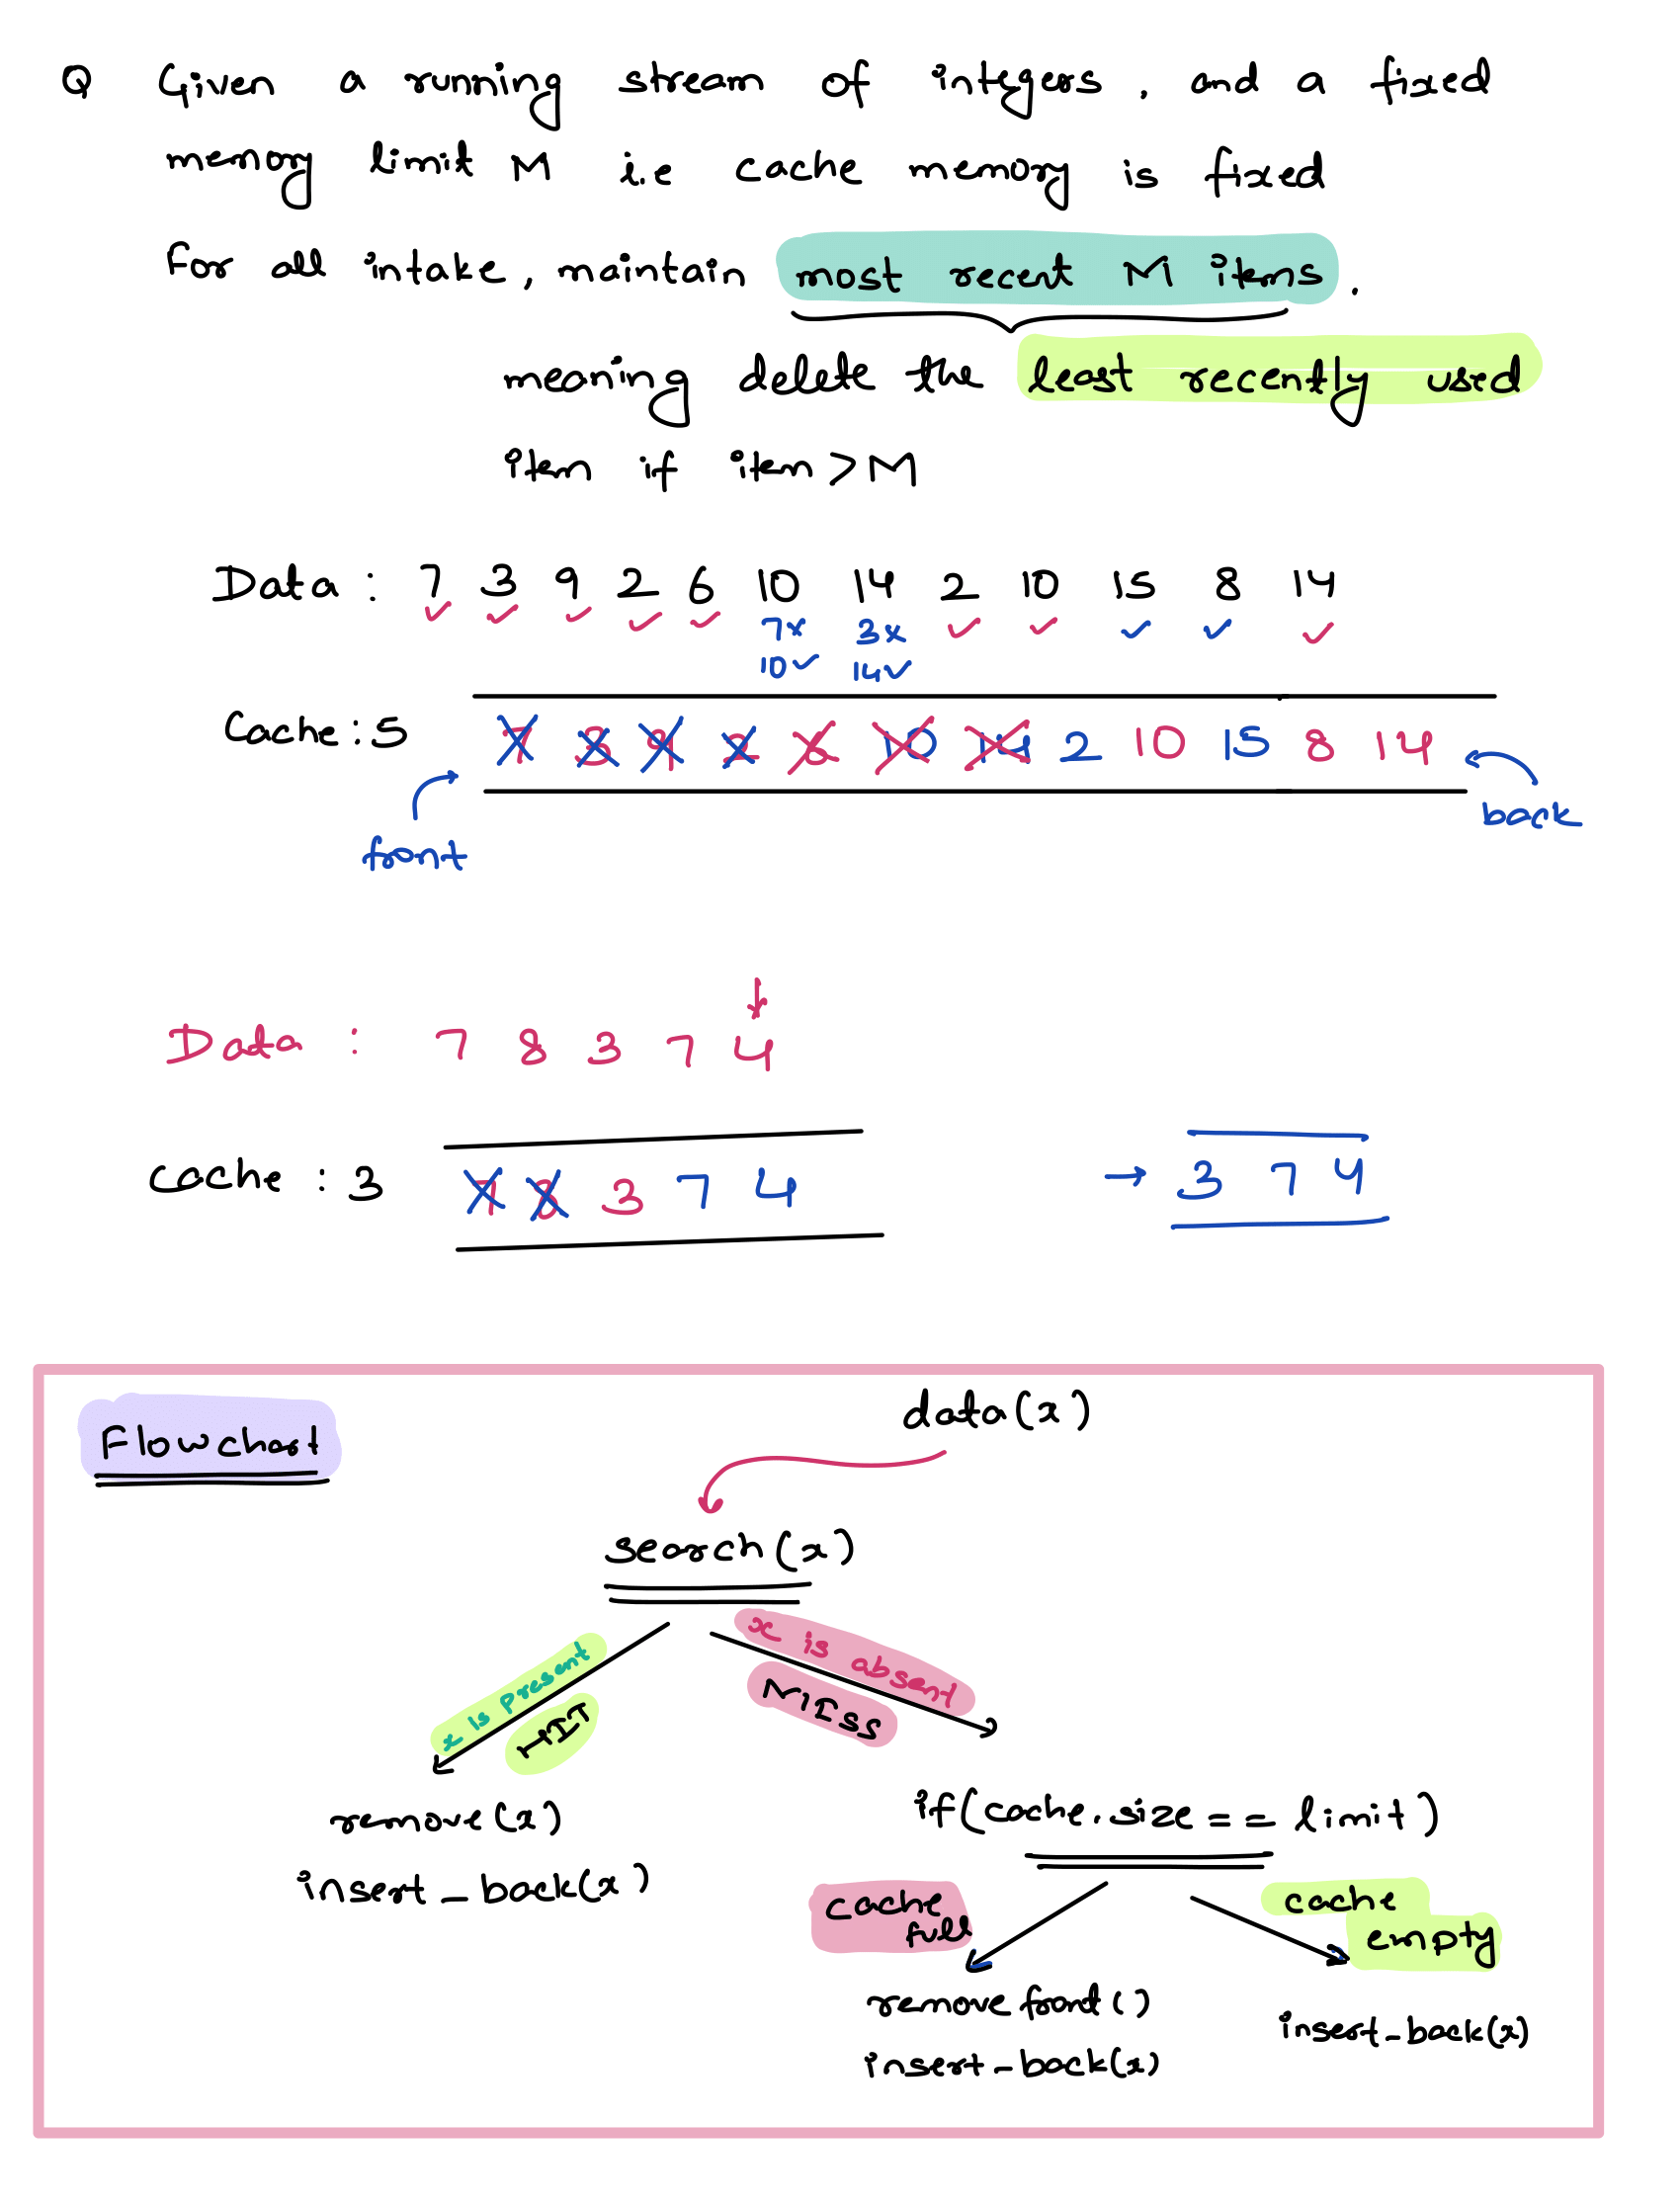 Q Given a running stream of integers, and a fixed
memory limit M i.e cache memory is fixed
For all intake, maintain most recent M items.
meaning delete the least recently used
item if item > M
Data : 7 3 9 2 6 10 14 2 10 15 8 14
✓ ✓ ✓ ✓ ✓ 7× 3× ✓ ✓ ✓ ✓ ✓
10✓ 14✓
Cache : 5 7 3 9 2 6 10 14 2 10 15 8 14
front
back
Data : 7 8 3 7 4
cache : 3 7 8 3 7 4 → 3 7 4
Flowchart
data(x)
search(x)
x is present
HIT
x is absent
MISS
remove(x)
insert_back(x)
if(cache.size == limit)
cache
full
cache
empty
remove front()
insert_back(x)
insert_back(x)